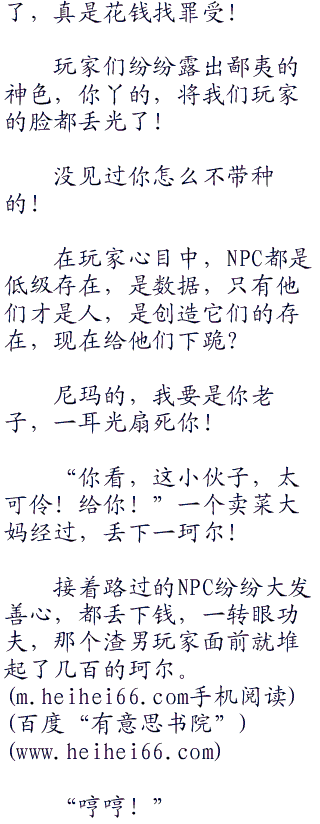 了，真是花钱找罪受！
玩家们纷纷露出鄙夷的
神色，你丫的，将我们玩家
的脸都丢光了！
没见过你怎么不带种
的！
在玩家心目中，NPC都是
低级存在，是数据，只有他
们才是人，是创造它们的存
在，现在给他们下跪？
尼玛的，我要是你老
子，一耳光扇死你！
“你看，这小伙子，太
可伶！给你！”一个卖菜大
妈经过，丢下一珂尔！
接着路过的NPC纷纷大发
善心，都丢下钱，一转眼功
夫，那个渣男玩家面前就堆
起了几百的珂尔。
(m.heihei66.com手机阅读)
(百度“有意思书院”)
(www.heihei66.com)
“哼哼！”